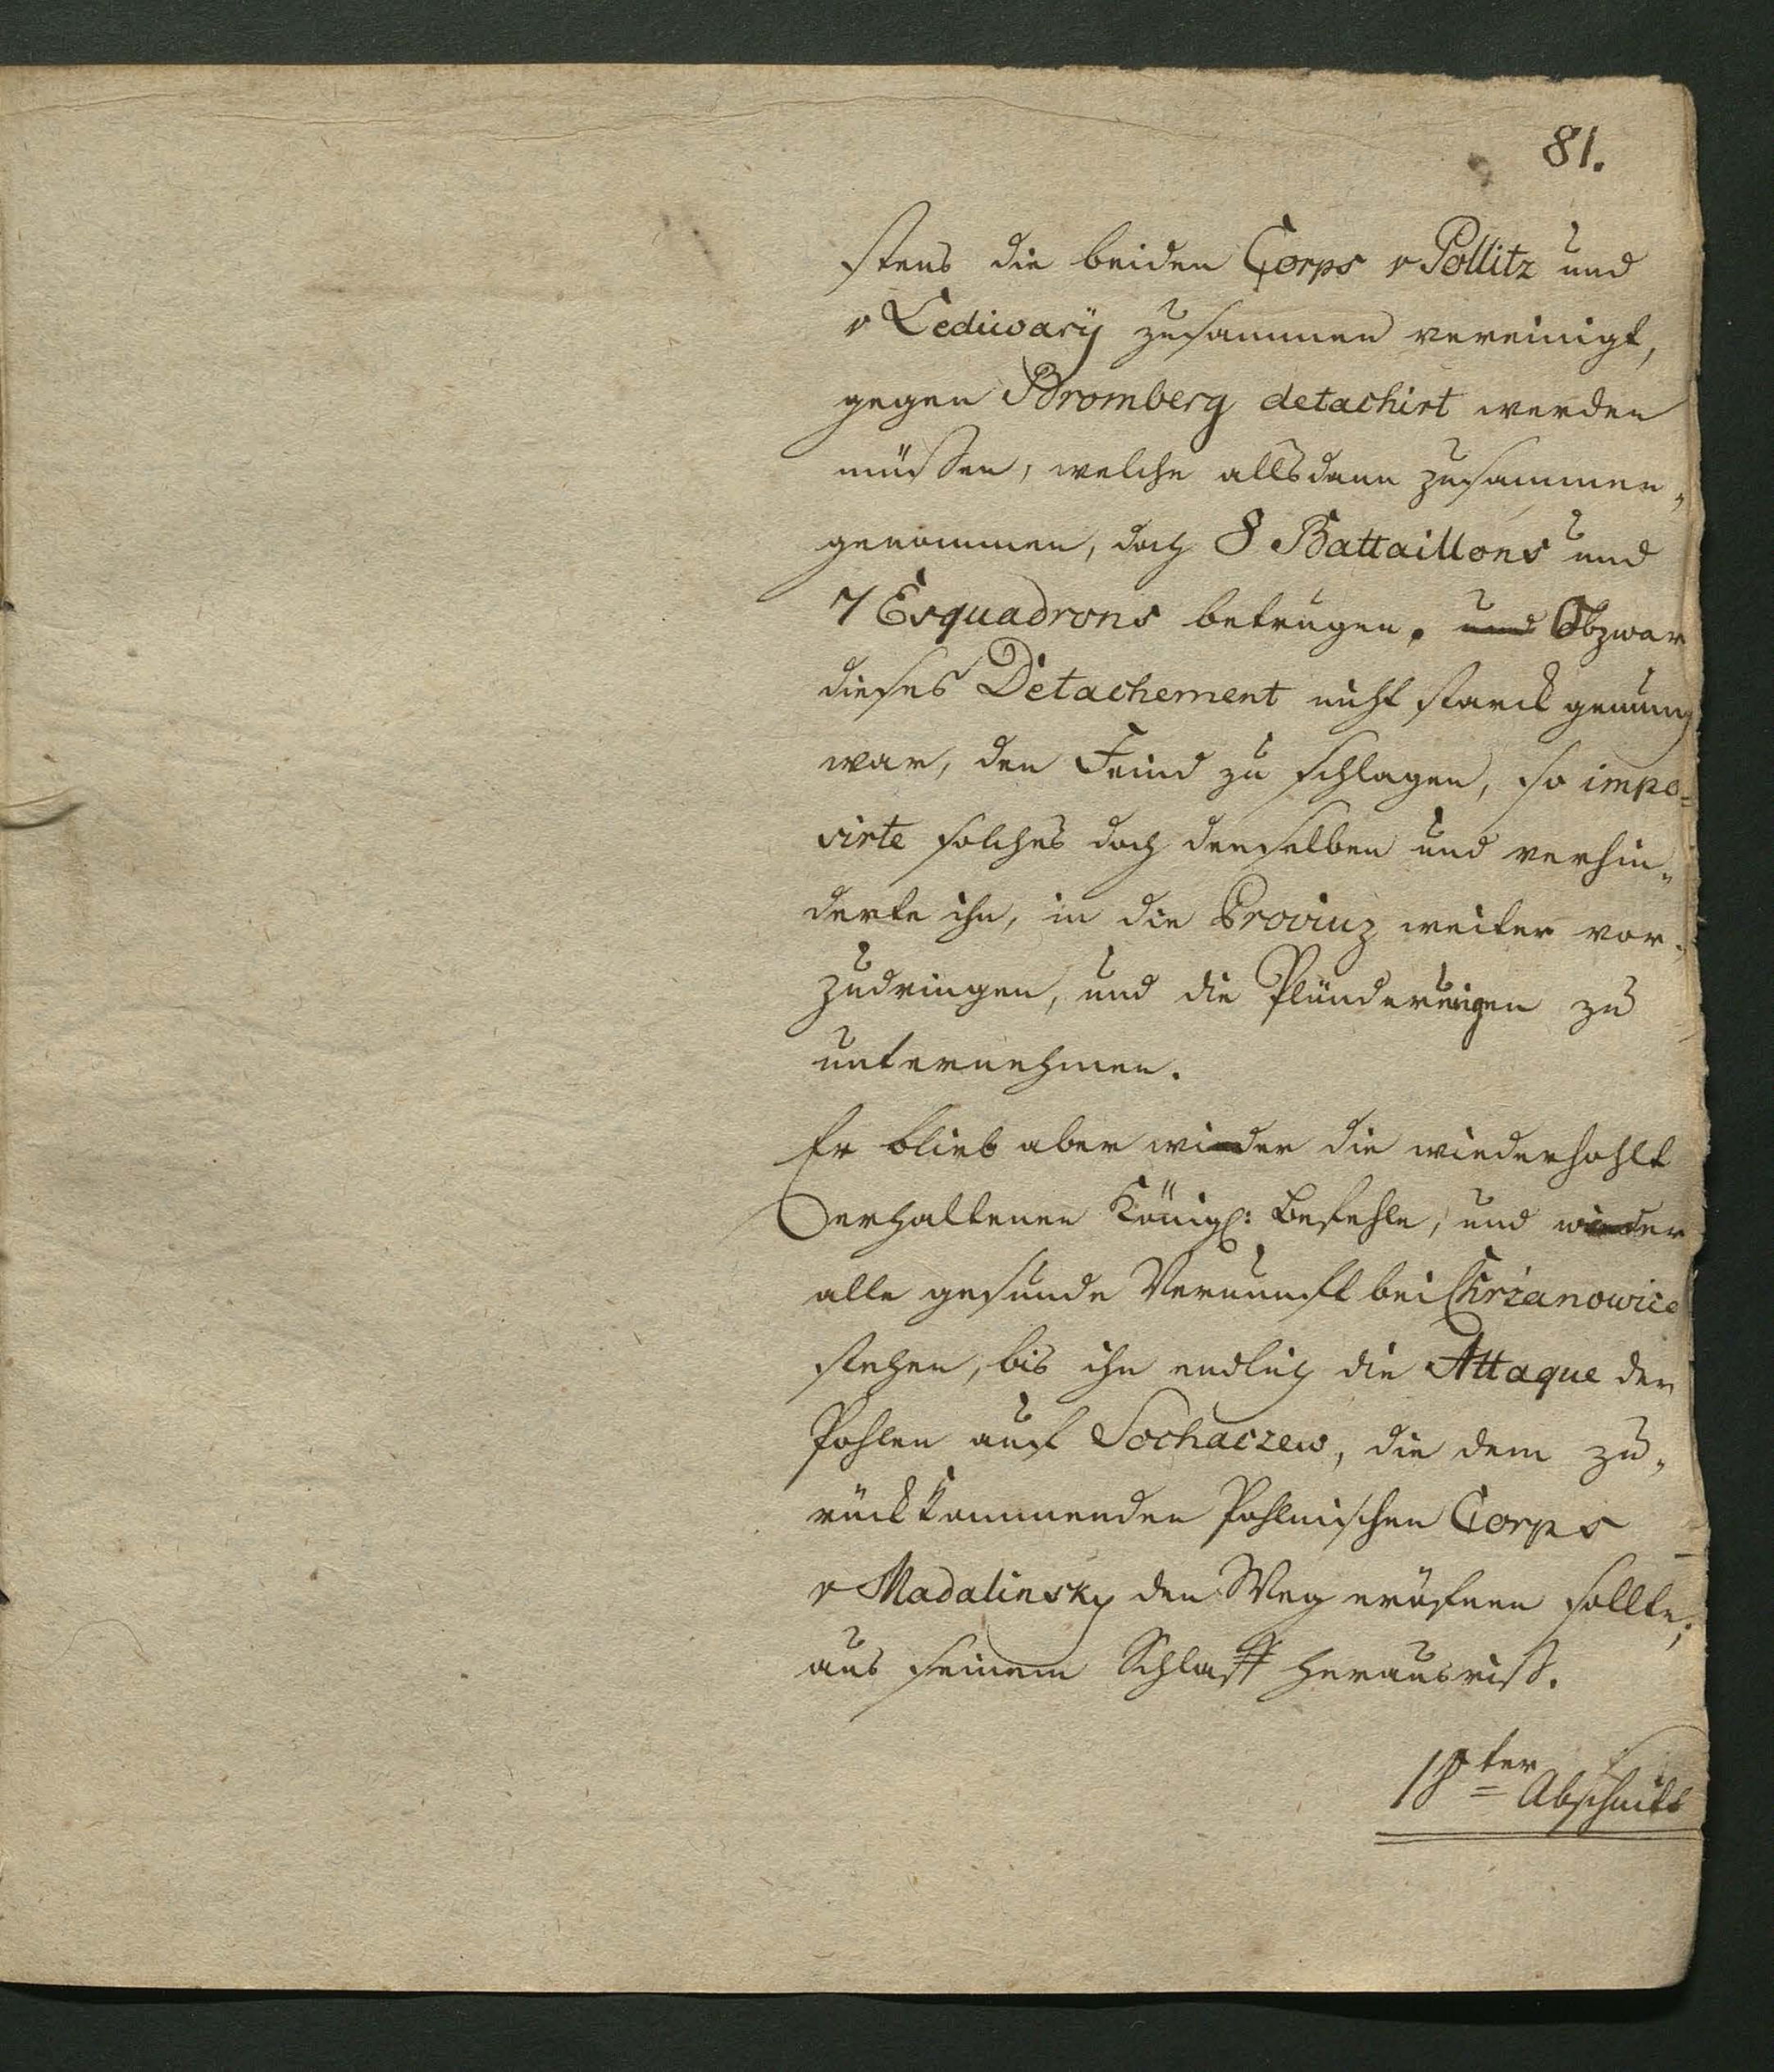 81.
stens die beiden Corps v Pollitz und
v Lediwarÿ zusammen vereinigt,
gegen Bromberg detachirt werden
müssen, welche allsdann zusammen„
genommen, doch 8 Battaillons und
7 Esquadrons betrugen. und Obzwar
dieses Detachement nicht starck genung
war, den Feind zu schlagen, so impo=
sirte solches doch denselben und verhin„
derte ihn, in die Provinz weiter vor„
zudringen, und die Plünderungen zu
unternehmen.
Er blieb aber wieder die wiederhohlt
erhaltenen Königl: Befehle, und wieder
alle gesunde Vernunft bei Chrzanowice
stehen, bis ihn endlich die Attaque der
Pohlen auf Sochaczew, die dem zu„
rückkommenden Pohlnischen Corps
v Madalinsky den Weg eröfnen sollte,
aus seinem Schlaff herausriß.
18ter Abschnitt